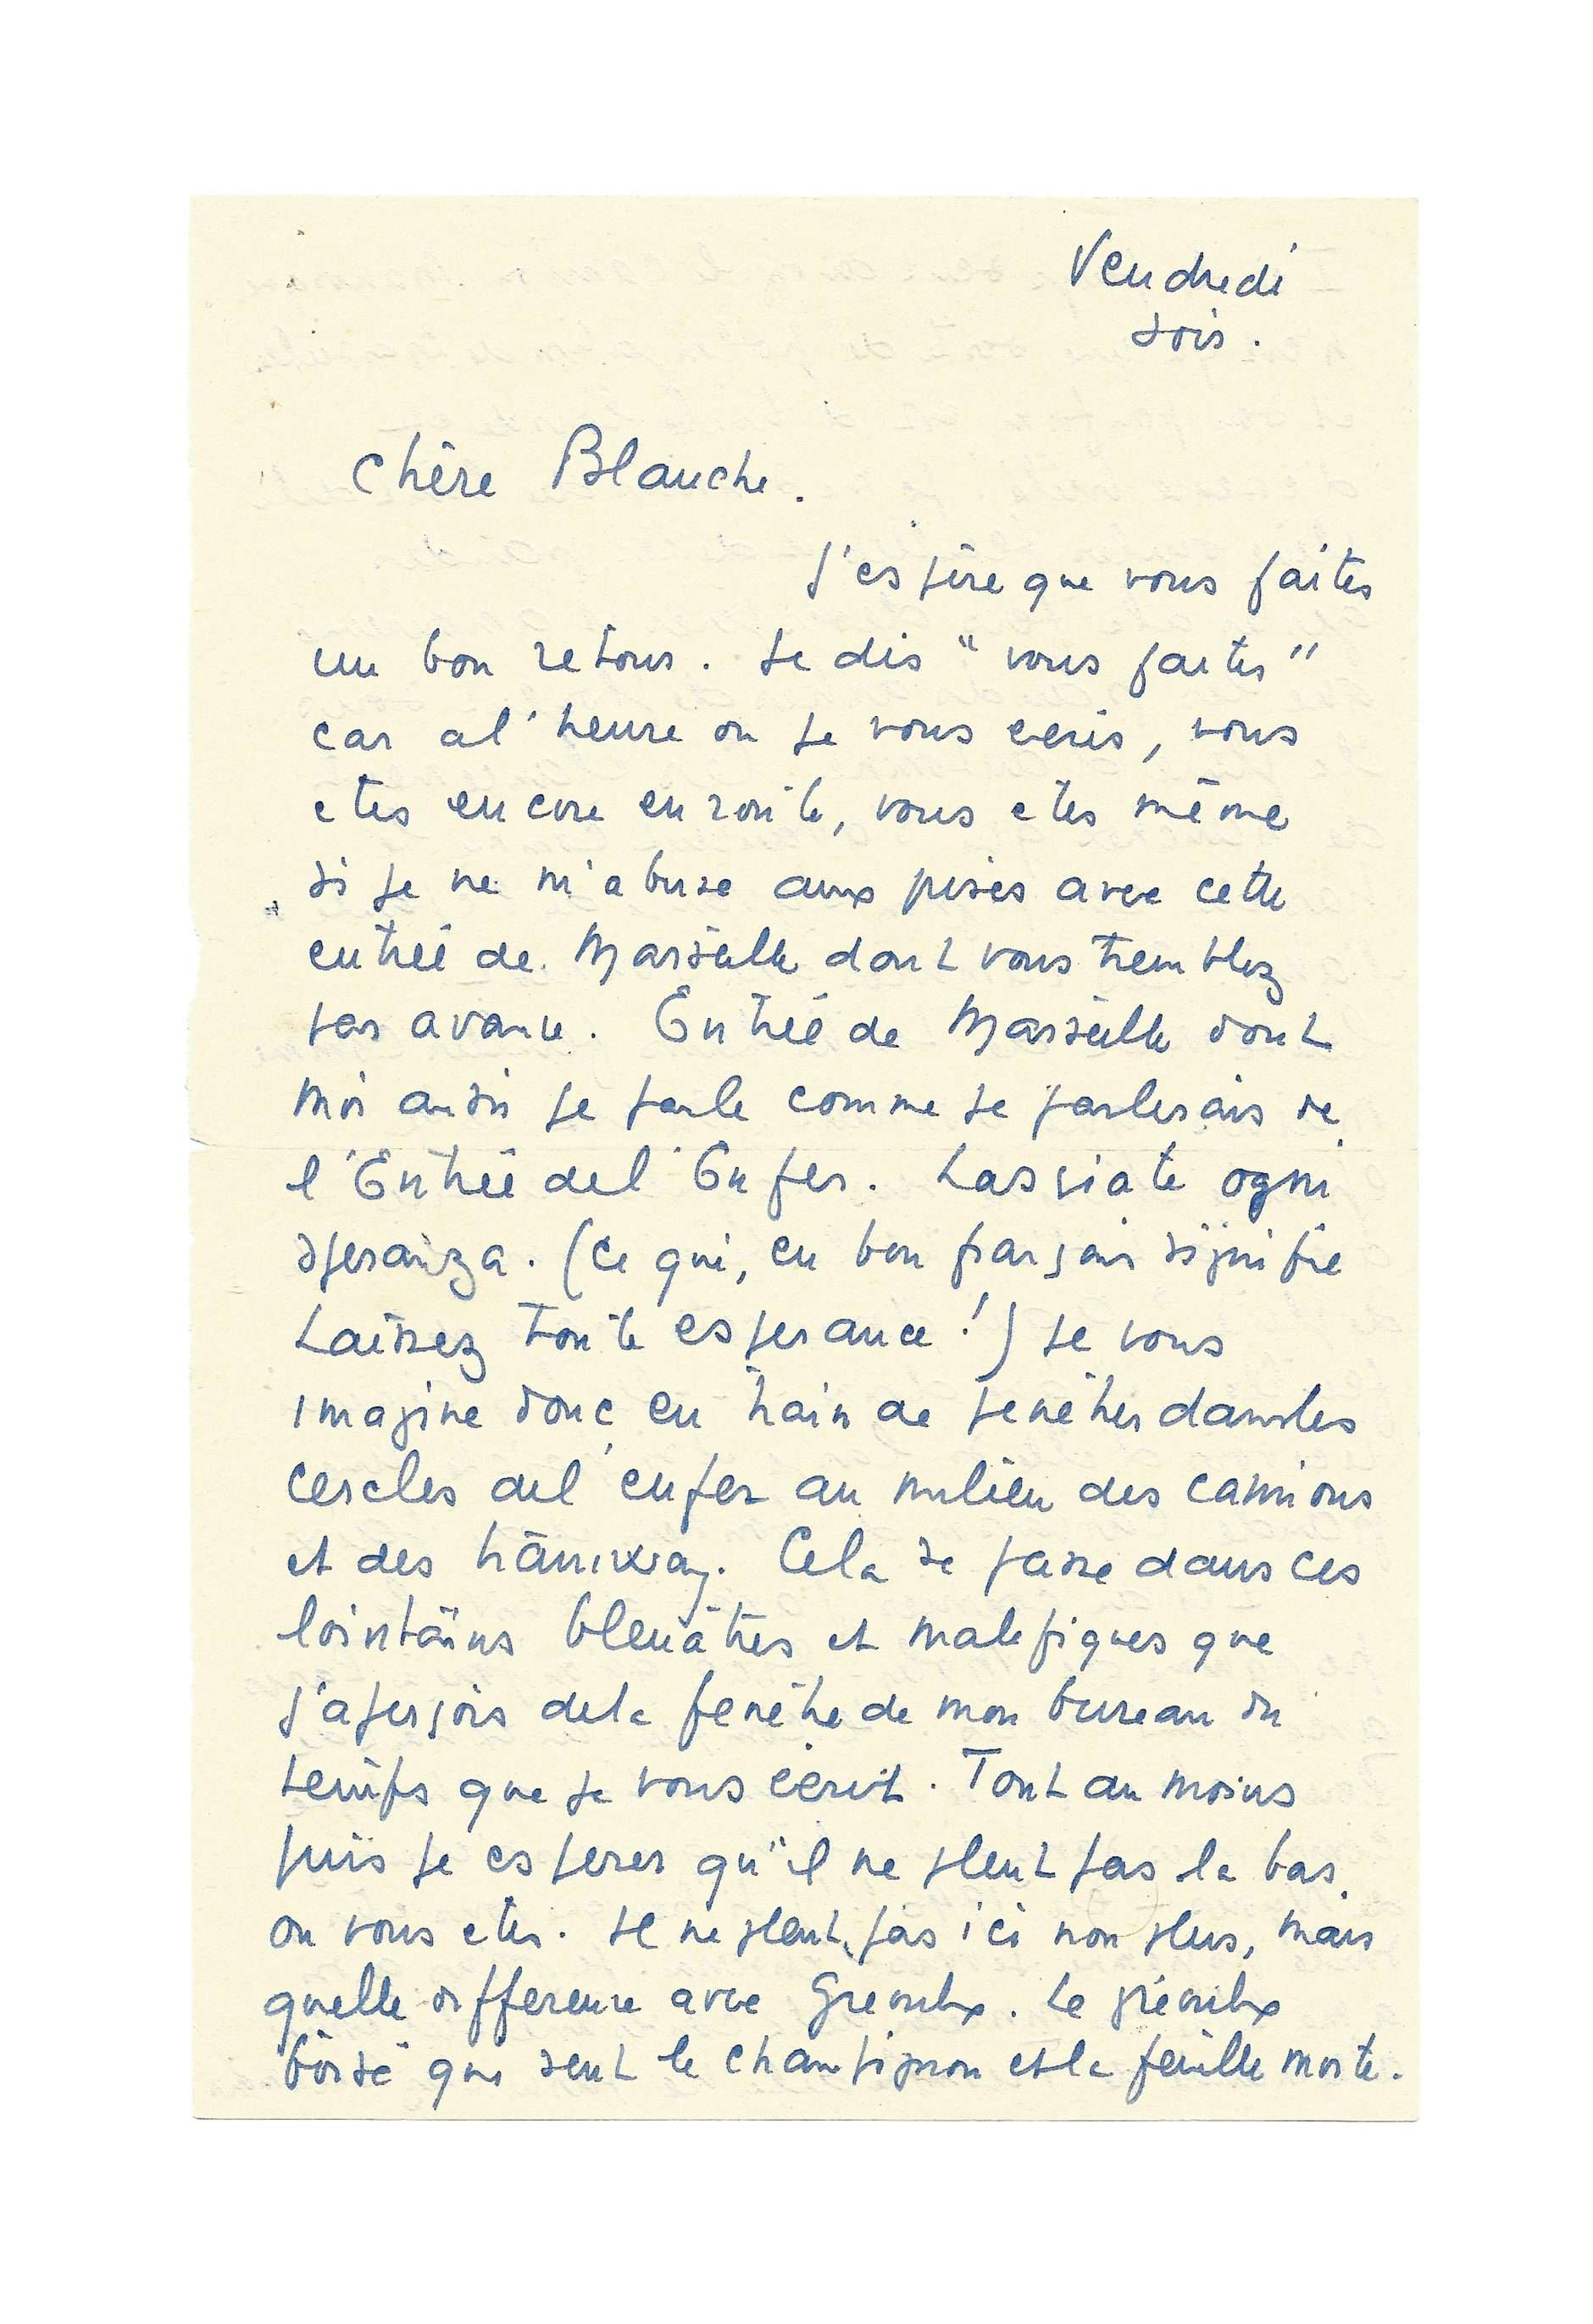 Vendredi
soir.
Chère Blanche.
J'espère que vous faites
un bon retour. Je dis "vous faites"
car a l'heure ou je vous ecris, vous
etes encore en route, vous etes même
si je ne m'abuse aux prises avec cette
entrée de Marseille dont vous tremblez
par avance. Entrée de Marseille dont
moi aussi je parle comme je parlerais de
l'Entrée de l'Enfer. Lassiate ogni
speranza. (ce qui, en bon français signifie
Laissez toute esperance!) Je vous
imagine donc en train de penétrer dans les
cercles de l'enfer au milieu des camions
et des tramway. Cela se passe dans ces
lointains bleuâtres et malefiques que
j'aperçois de la fenêtre de mon bureau du
temps que je vous écrit. Tout au moins
puis je esperer qu'il ne pleut pas la bas
ou vous etes. Il ne pleut pas ici non plus, mais
quelle difference avec Gréoulx. Le gréoulx
boisé qui sent le champignon et la feuille morte.